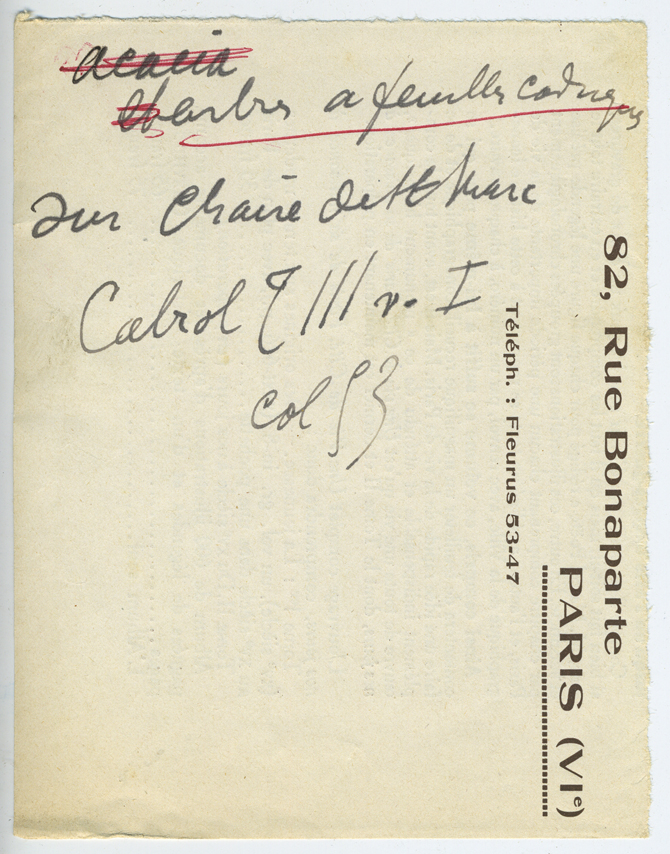 acacia
arbres a feuilles caduques
sur Chaire de St Marc
Cabrol T III v. I
col 53
82, Rue Bonaparte
PARIS (VIe)
Téléph. : Fleurus 53-47